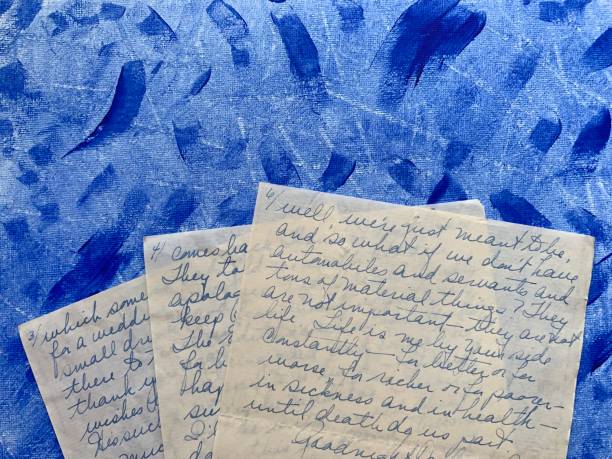 3/ which some
for a weddi
small dr
there to
thank y
wishes
His suc
muc
4/ comes ba
They to
apolog
keep
The
for h
hap
su
I'
da
well we're just meant to be,
and so what if we don't have
automobiles and servants and
tons of material things? They
are not important — they are not
life. Life is me by your side
constantly — for better or for
worse for richer or for poorer —
in sickness and in health —
until death do us part.
Goodnight